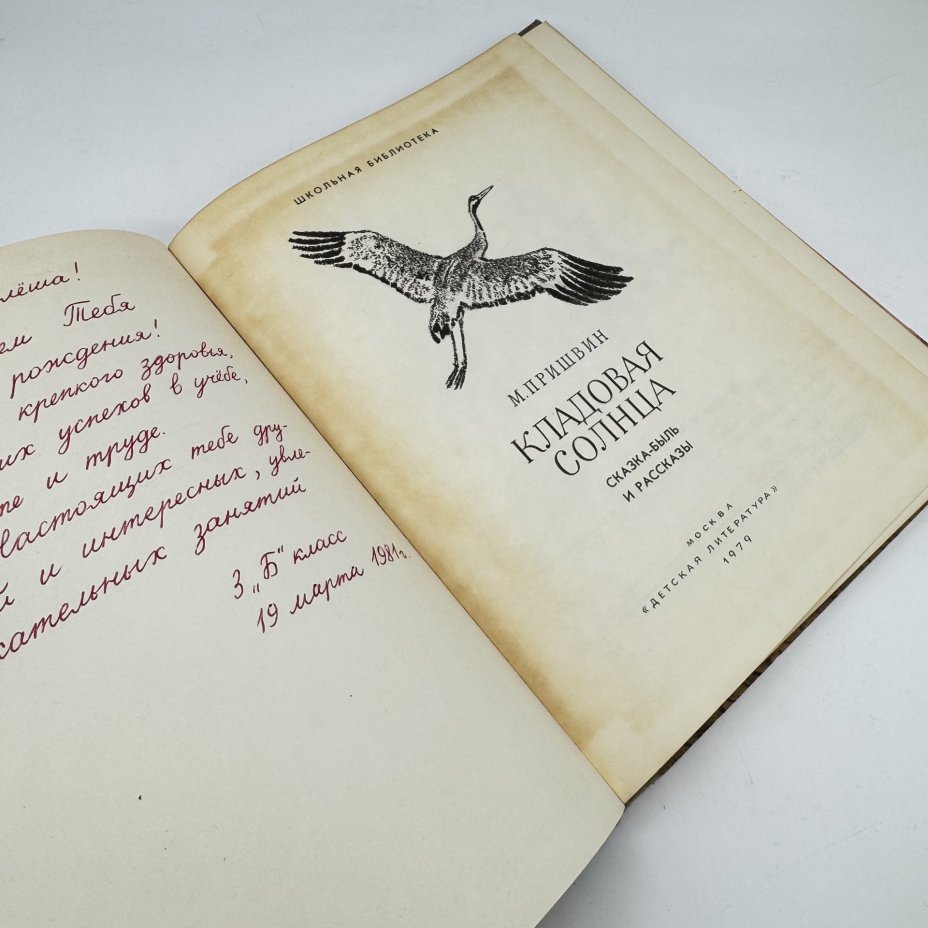 лёша!
ем Тебя
рождения!
крепкого здоровья,
их успехов в учёбе,
те и труде.
Настоящих тебе дру-
й и интересных, увле-
кательных занятий
3 „Б" класс
19 марта 1981г.
ШКОЛЬНАЯ БИБЛИОТЕКА
М. ПРИШВИН
КЛАДОВАЯ
СОЛНЦА
СКАЗКА-БЫЛЬ
И РАССКАЗЫ
МОСКВА
«ДЕТСКАЯ ЛИТЕРАТУРА»
1979